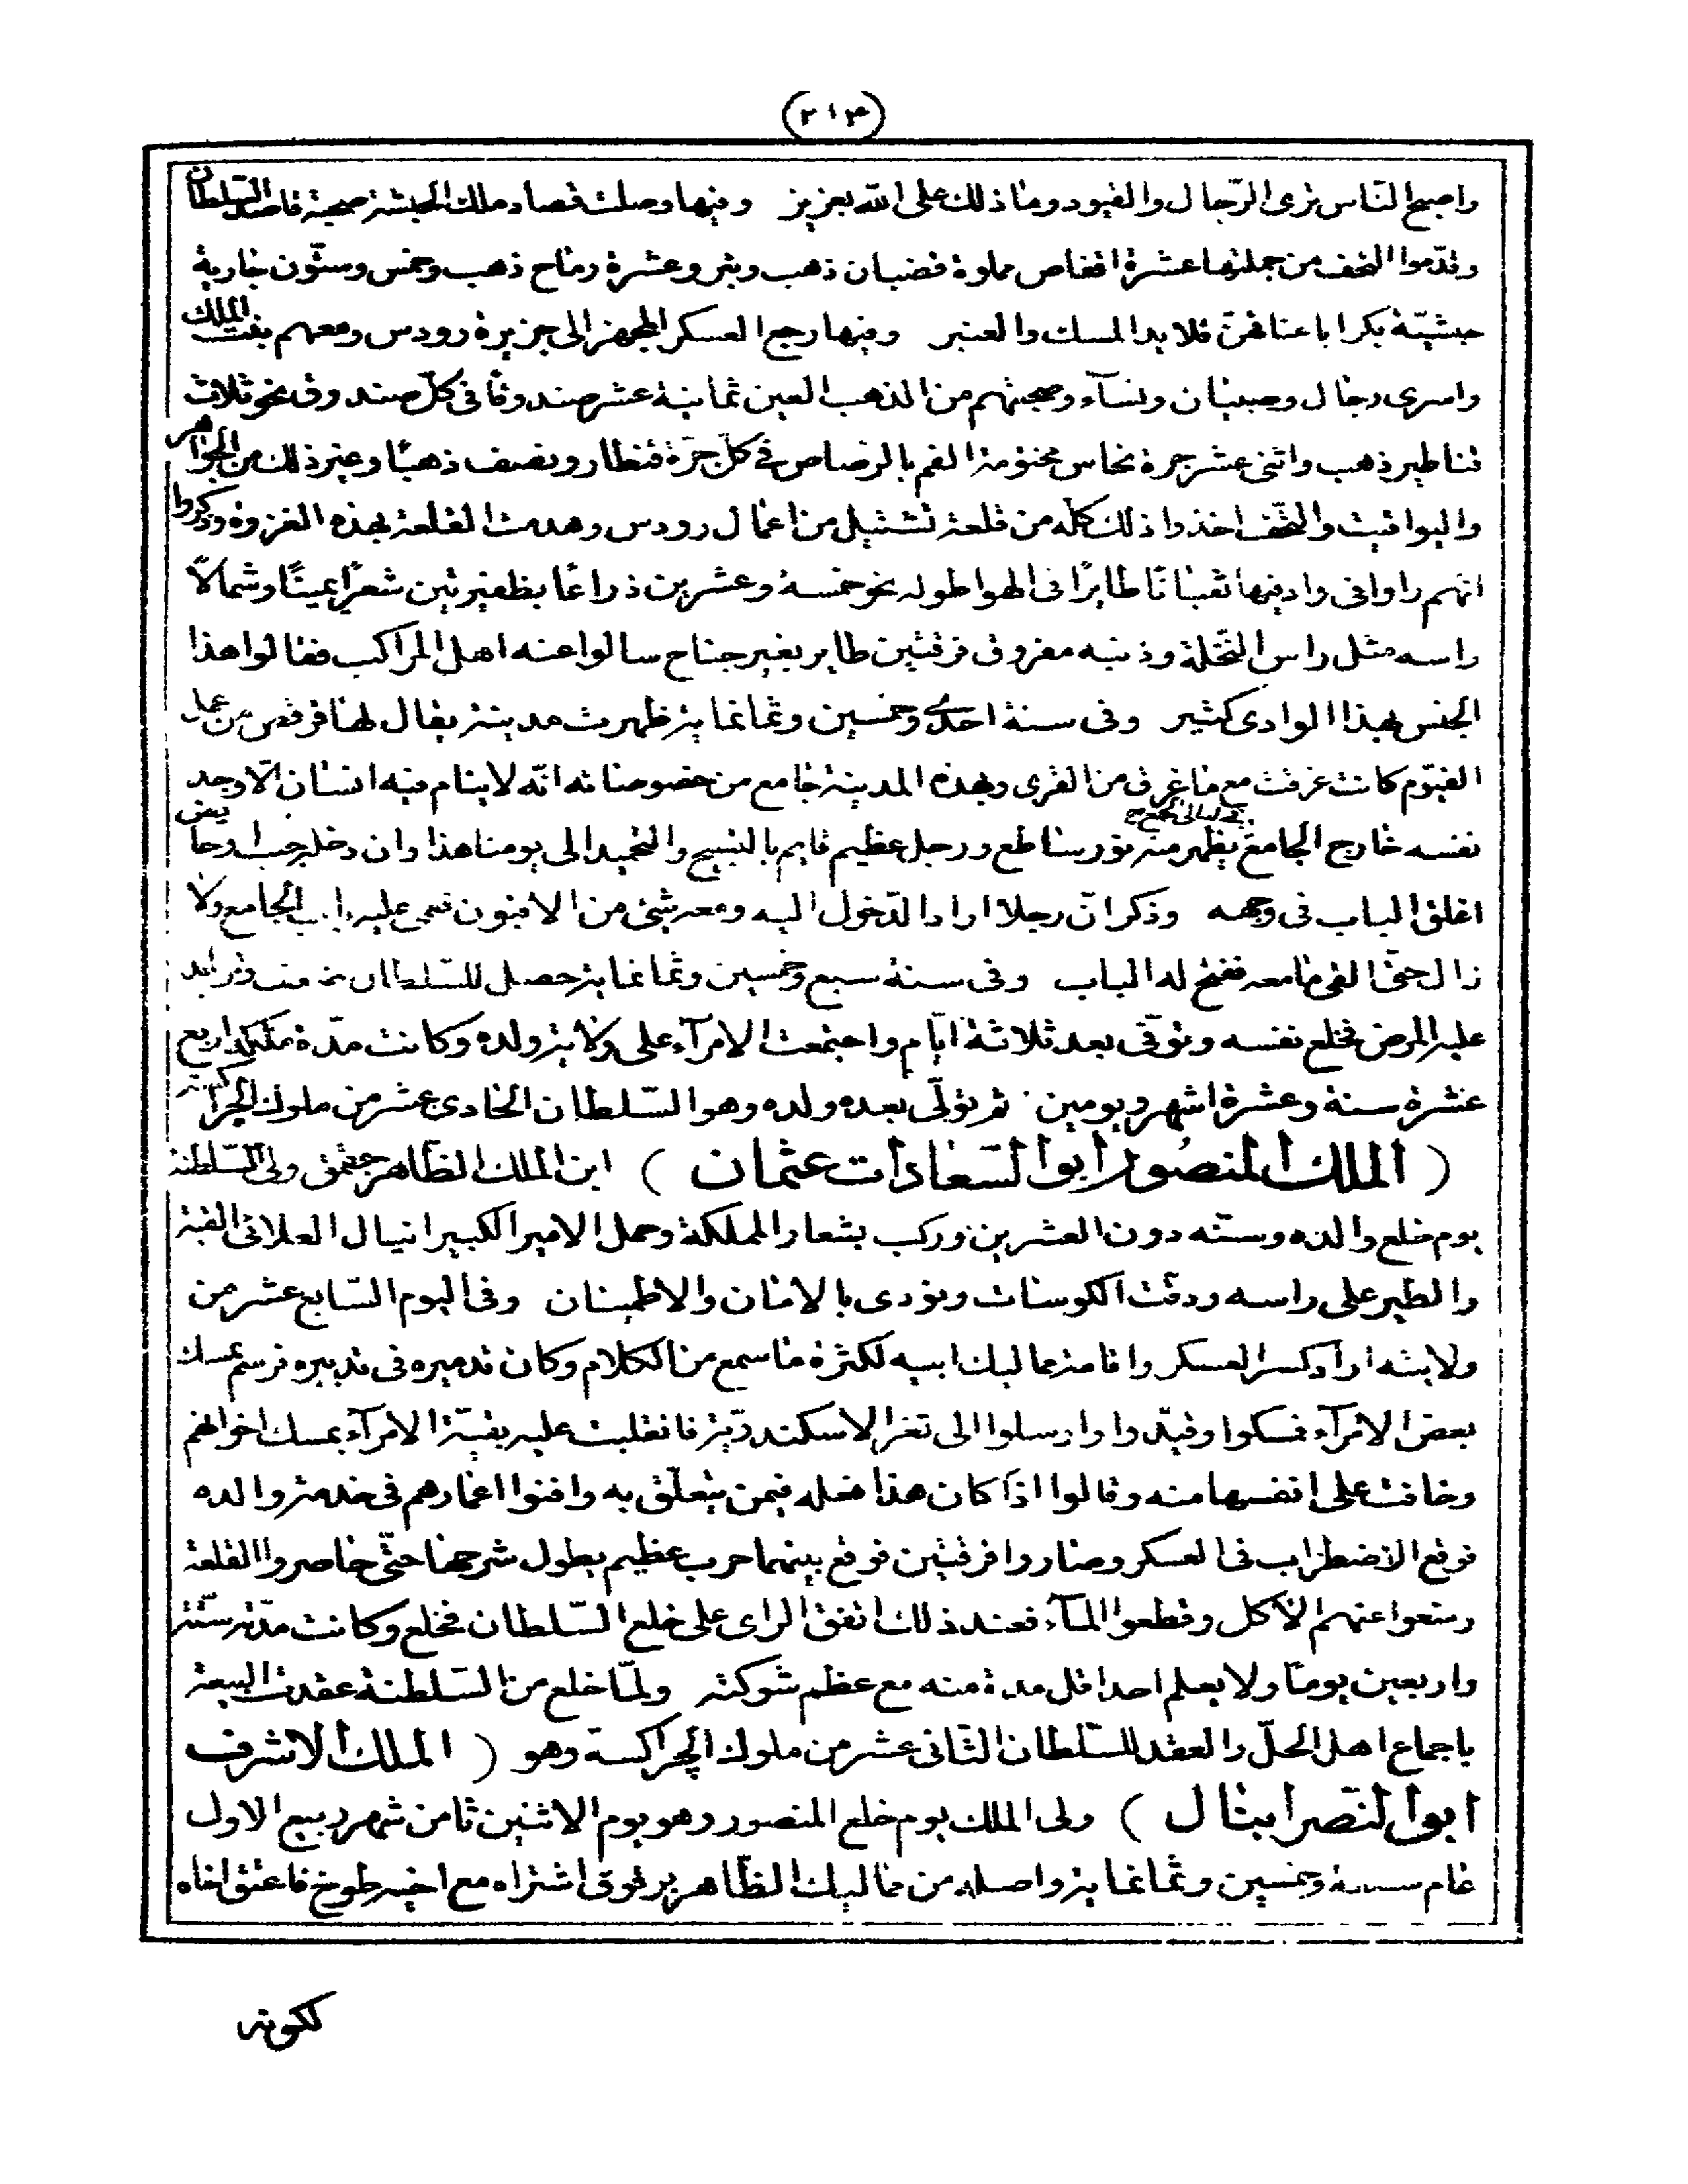 (٢١٣)
واصبح النّاس ترى الرّجال والقيود وما ذلك على الله بعزيز وفيها وصلت قصاد ملك الحبشة صحبة قاصد السّلطان
وقدّموا التحف من جملتها عشرة اقفاص مملوة قضبان ذهب وتبر وعشرة رماح ذهب وخمس وستّون جارية
حبشيّة بكرا باعناقهنّ قلايد المسك والعنبر وفيها رجع العسكر المجهز الى جزيرة رودس ومعهم بنت الملك
واسرى رجال وصبيان ونسآء وصحبتهم من الذهب العين ثمانية عشر صندوقا فى كلّ صندوق نحو ثلاث
قناطير ذهب واثنى عشر جرة نحاس مختومة الفم بالرصاص فى كلّ جرّة قنطار ونصف ذهبًا وغير ذلك من الجواهر
واليواقيت والتحّف اخذوا ذلك كلّه من قلعة قشتيل من اعمال رودس وهدمت القلعة بهذه الغزوة وذكروا
انهم راوا فى واد فيها ثعبانًا طايرًا فى الهوا طوله نحو خمسة وعشرين ذراعًا بظفيرتين شعرًا يمينًا وشمالًا
راسه مثل راس النّخلة وذنبه مفروق فرقتين طاير بغير جناح سالوا عنه اهل المراكب فقالوا هذا
الجنس بهذا الوادى كثير وفى سنة احدى وخمسين وثمانماية ظهرت مدينة يقال لها قرقس من عمل
الفيّوم كانت غرقت مع ما غرق من القرى وبهذه المدينة جامع من خصوصياته انّه لا ينام فيه انسان الّا وجد
نفسه خارج الجامع يظهر منه نور ساطع ورجل عظيم قايم بالتسبيح والتحميد الى يومنا هذا وان دخله جنب او حايض
فى ليالى الجمع صح
اغلق الباب فى وجهه وذكر انّ رجلا اراد الدّخول اليه ومعه شئ من الافيون فسمّ عليه باب الجامع ولا
زال حتّى القى ما معه ففتح له الباب وفى سنة سبع وخمسين وثمانماية حصل للسّلطان وتزايد
عليه المرض فخلع نفسه وتوفّى بعد ثلاثة ايّام واجتمعت الامرآء على ولاية ولده وكانت مدّة مملكته اربع
عشرة سنة وعشرة اشهر ويومين ثم تولّى بعده ولده وهو السّلطان الحادى عشر من ملوك الجراكسة
( الملك المنصور ابو السّعادات عثمان ) ابن الملك الظّاهر جقمق ولى السّلطنة
يوم خلع والده وسنّه دون العشرين وركب بشعار المملكة وحمل الامير الكبير اينال العلائى القبة
والطير على راسه ودقّت الكوسات ونودى بالامان والاطمينان وفى اليوم السّابع عشر من
ولايته اراد كسر العسكر واقامة مماليك ابيه لكثرة ما سمع من الكلام وكان تدميره فى تدبيره فرسم بمسك
بعض الامرآء فمسكوا وقيّدوا وارسلوا الى ثغر الاسكندريّة فانقلبت عليه بقيّة الامرآء بمسك اخوانهم
وخافت على انفسها منه وقالوا اذا كان هذا فعله فيمن يتعلّق به وافنوا اعمارهم فى خدمة والده
فوقع الاضطراب فى العسكر وصاروا فرقتين فوقع بينهما حرب عظيم يطول شرحها حتّى حاصروا القلعة
ومنعوا عنهم الاكل وقطعوا المآء فعند ذلك اتفق الراى على خلع السّلطان فخلع وكانت مدّته ستّة
واربعين يومًا ولا يعلم احدا قل مدة منه مع عظم شوكته ولمّا خلع من السّلطنة عقدت البيعة
باجماع اهل الحلّ والعقد للسّلطان الثّانى عشر من ملوك الجراكسة وهو ( الملك الاشرف
ابو النّصر اينال ) ولى الملك يوم خلع المنصور وهو يوم الاثنين ثامن شهر ربيع الاول
عام سبعة وخمسين وثمانماية واصله من مماليك الظّاهر برقوق اشتراه مع اخيه طوخ فاعتق اخاه
لكونه